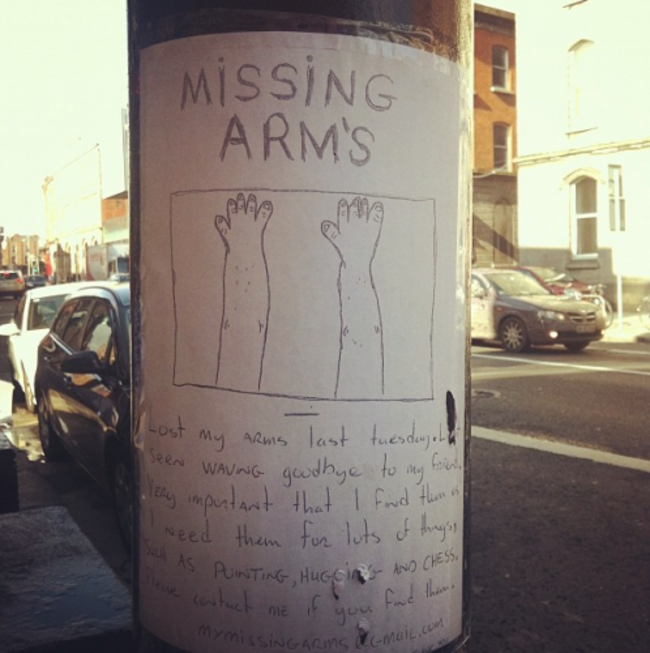 MiSSiNG
ARM'S
Lost my ARMS last tuesday. Last
seen WAVING goodbye to my friend.
Very important that I find them as
I need them for lots of things,
such AS POINTING, HUGGING AND CHESS.
Please contact me if you find them.
mymissingarms@gmail.com